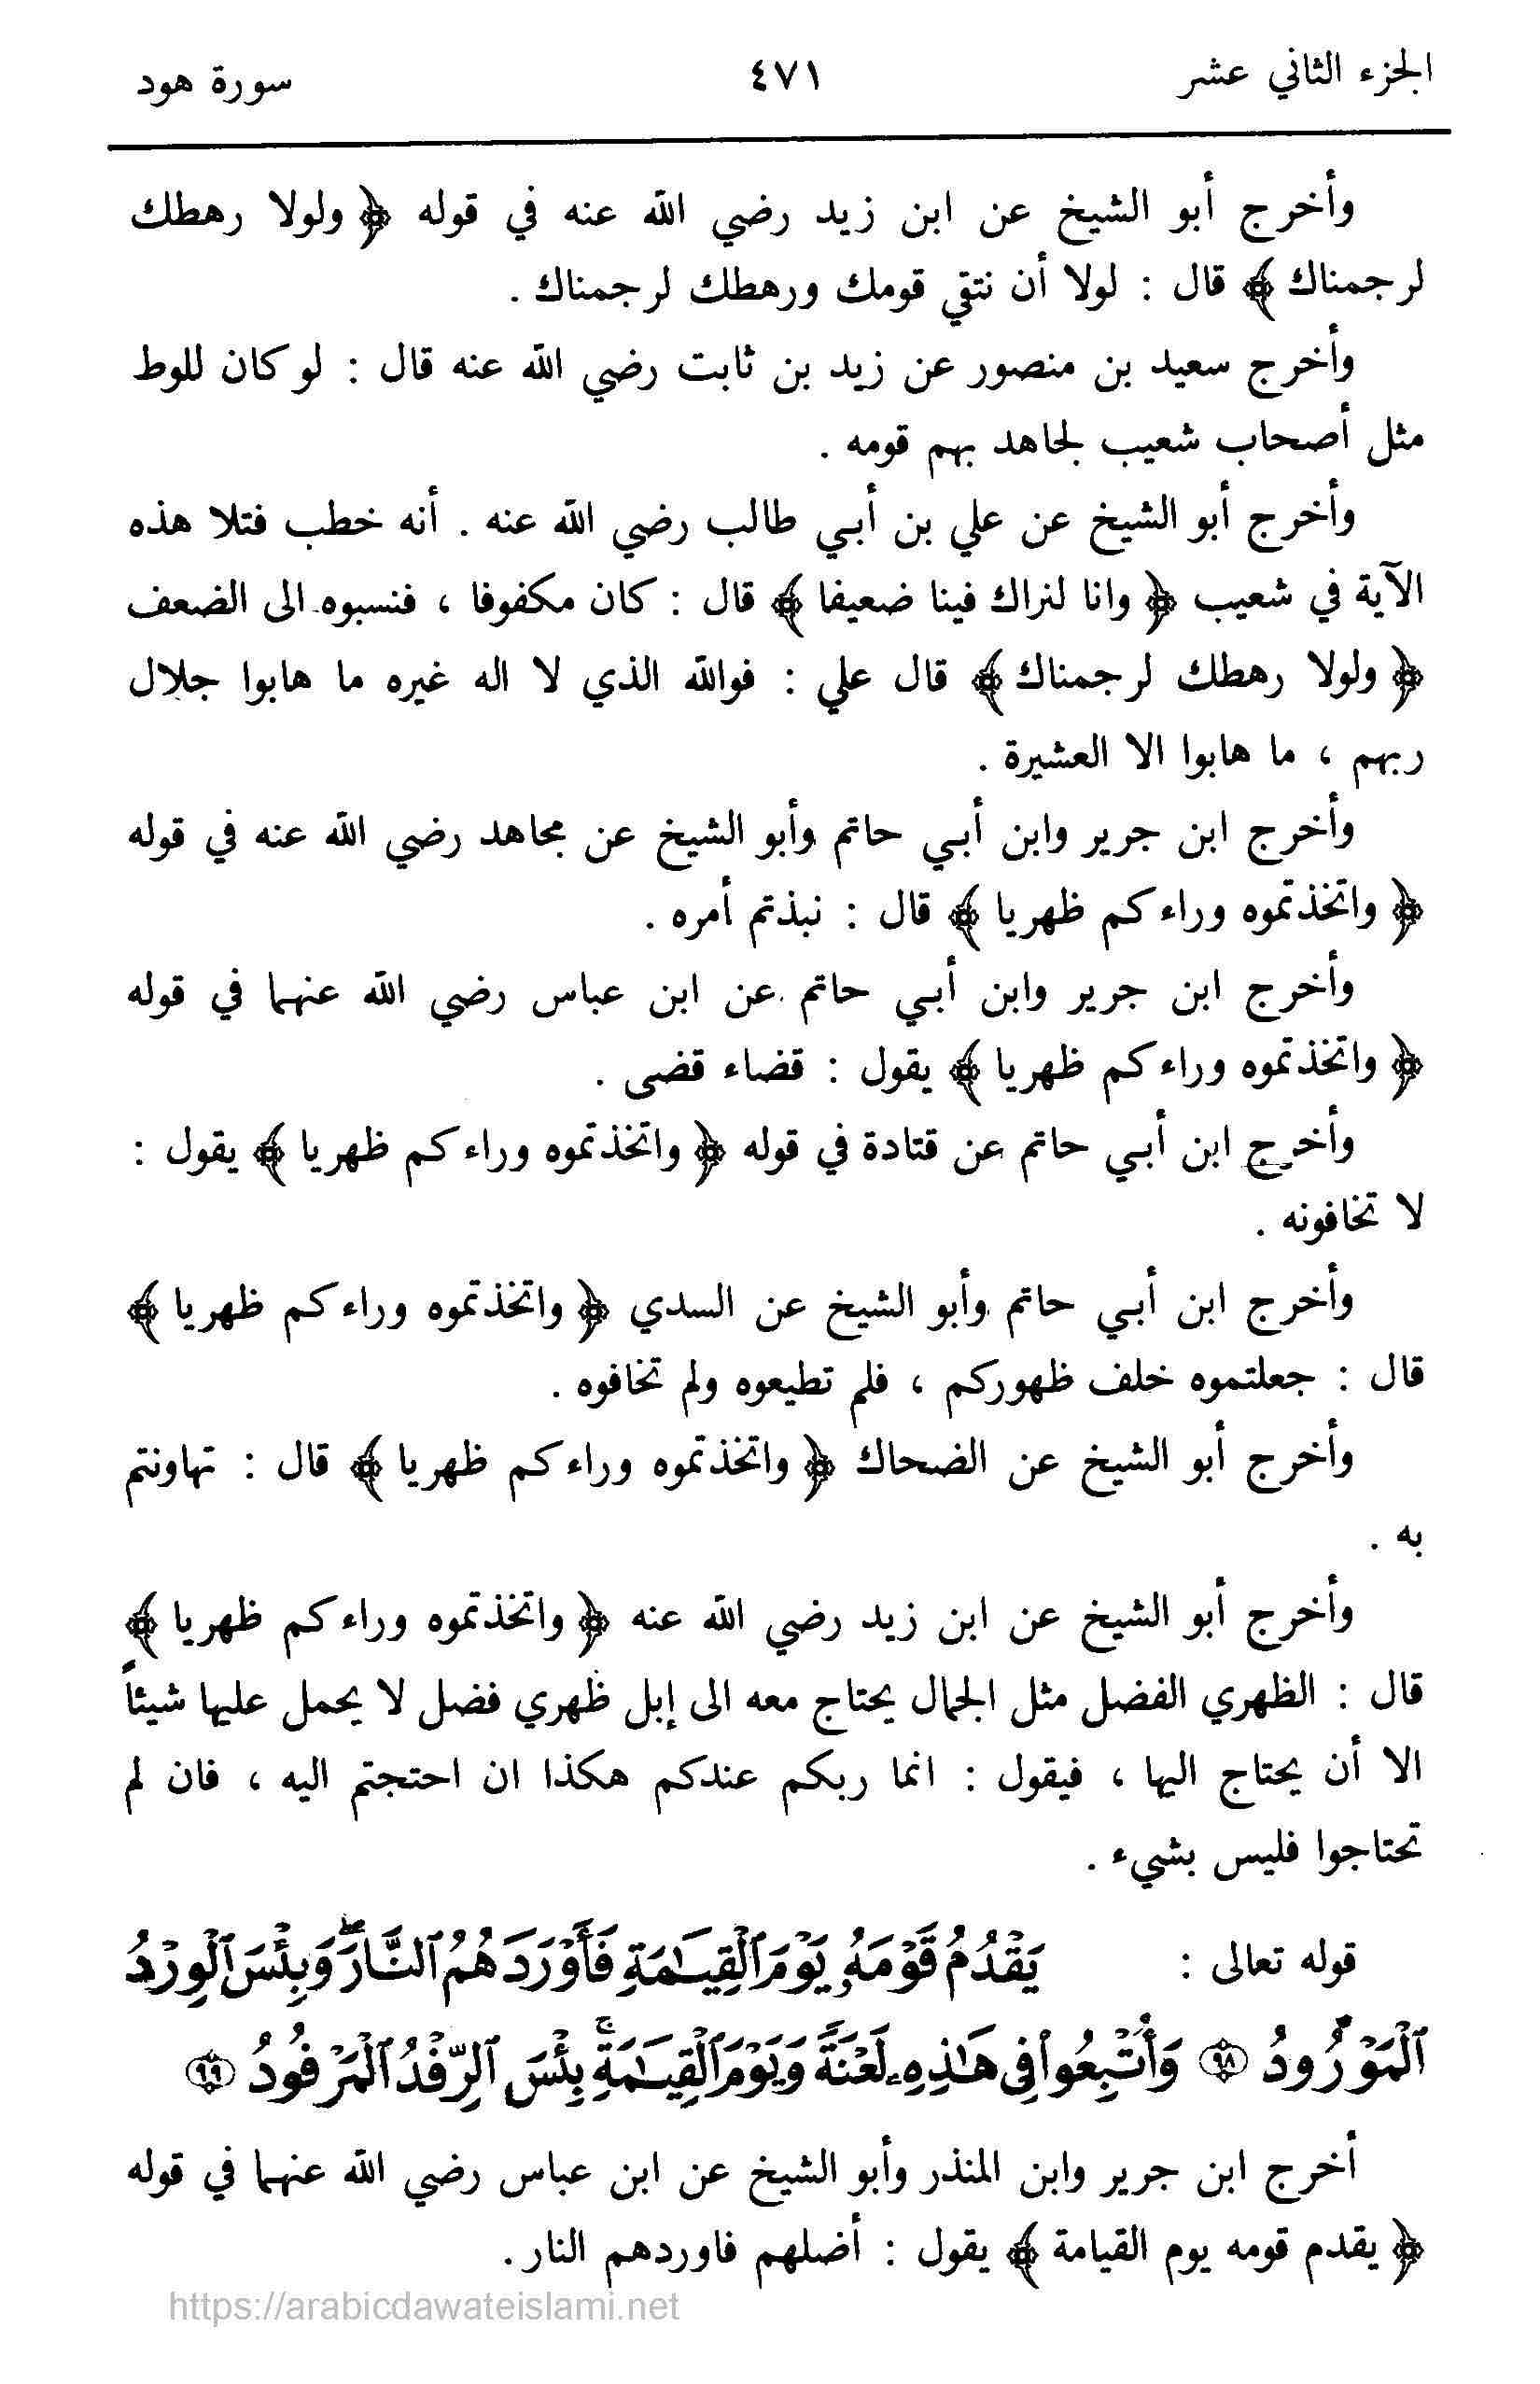 الجزء الثاني عشر ٤٧١ سورة هود
وأخرج أبو الشيخ عن ابن زيد رضي الله عنه في قوله ﴿ ولولا رهطك
لرجمناك ﴾ قال : لولا أن نتقي قومك ورهطك لرجمناك .
وأخرج سعيد بن منصور عن زيد بن ثابت رضي الله عنه قال : لو كان للوط
مثل أصحاب شعيب لجاهد بهم قومه .
وأخرج أبو الشيخ عن علي بن أبي طالب رضي الله عنه . أنه خطب فتلا هذه
الآية في شعيب ﴿ وانا لنراك فينا ضعيفا ﴾ قال : كان مكفوفا ، فنسبوه الى الضعف
﴿ ولولا رهطك لرجمناك ﴾ قال علي : فوالله الذي لا اله غيره ما هابوا جلال
ربهم ، ما هابوا الا العشيرة .
وأخرج ابن جرير وابن أبي حاتم وأبو الشيخ عن مجاهد رضي الله عنه في قوله
﴿ واتخذتموه وراءكم ظهريا ﴾ قال : نبذتم أمره .
وأخرج ابن جرير وابن أبي حاتم عن ابن عباس رضي الله عنهما في قوله
﴿ واتخذتموه وراءكم ظهريا ﴾ يقول : قضاء قضى .
وأخرج ابن أبي حاتم عن قتادة في قوله ﴿ واتخذتموه وراءكم ظهريا ﴾ يقول :
لا تخافونه .
وأخرج ابن أبي حاتم وأبو الشيخ عن السدي ﴿ واتخذتموه وراءكم ظهريا ﴾
قال : جعلتموه خلف ظهوركم ، فلم تطيعوه ولم تخافوه .
وأخرج أبو الشيخ عن الضحاك ﴿ واتخذتموه وراءكم ظهريا ﴾ قال : تهاونتم
به .
وأخرج أبو الشيخ عن ابن زيد رضي الله عنه ﴿ واتخذتموه وراءكم ظهريا ﴾
قال : الظهري الفضل مثل الجمال يحتاج معه الى إبل ظهري فضل لا يحمل عليها شيئاً
الا أن يحتاج اليها ، فيقول : انما ربكم عندكم هكذا ان احتجتم اليه ، فان لم
تحتاجوا فليس بشيء .
قوله تعالى : يَقْدُمُ قَوْمَهُۥ يَوْمَ ٱلْقِيَـٰمَةِ فَأَوْرَدَهُمُ ٱلنَّارَۖ وَبِئْسَ ٱلْوِرْدُ
ٱلْمَوْرُودُ ۝٩٨ وَأُتْبِعُوا۟ فِى هَـٰذِهِۦ لَعْنَةً وَيَوْمَ ٱلْقِيَـٰمَةِۚ بِئْسَ ٱلرِّفْدُ ٱلْمَرْفُودُ ۝٩٩
أخرج ابن جرير وابن المنذر وأبو الشيخ عن ابن عباس رضي الله عنهما في قوله
﴿ يقدم قومه يوم القيامة ﴾ يقول : أضلهم فاوردهم النار .
https://arabicdawateislami.net